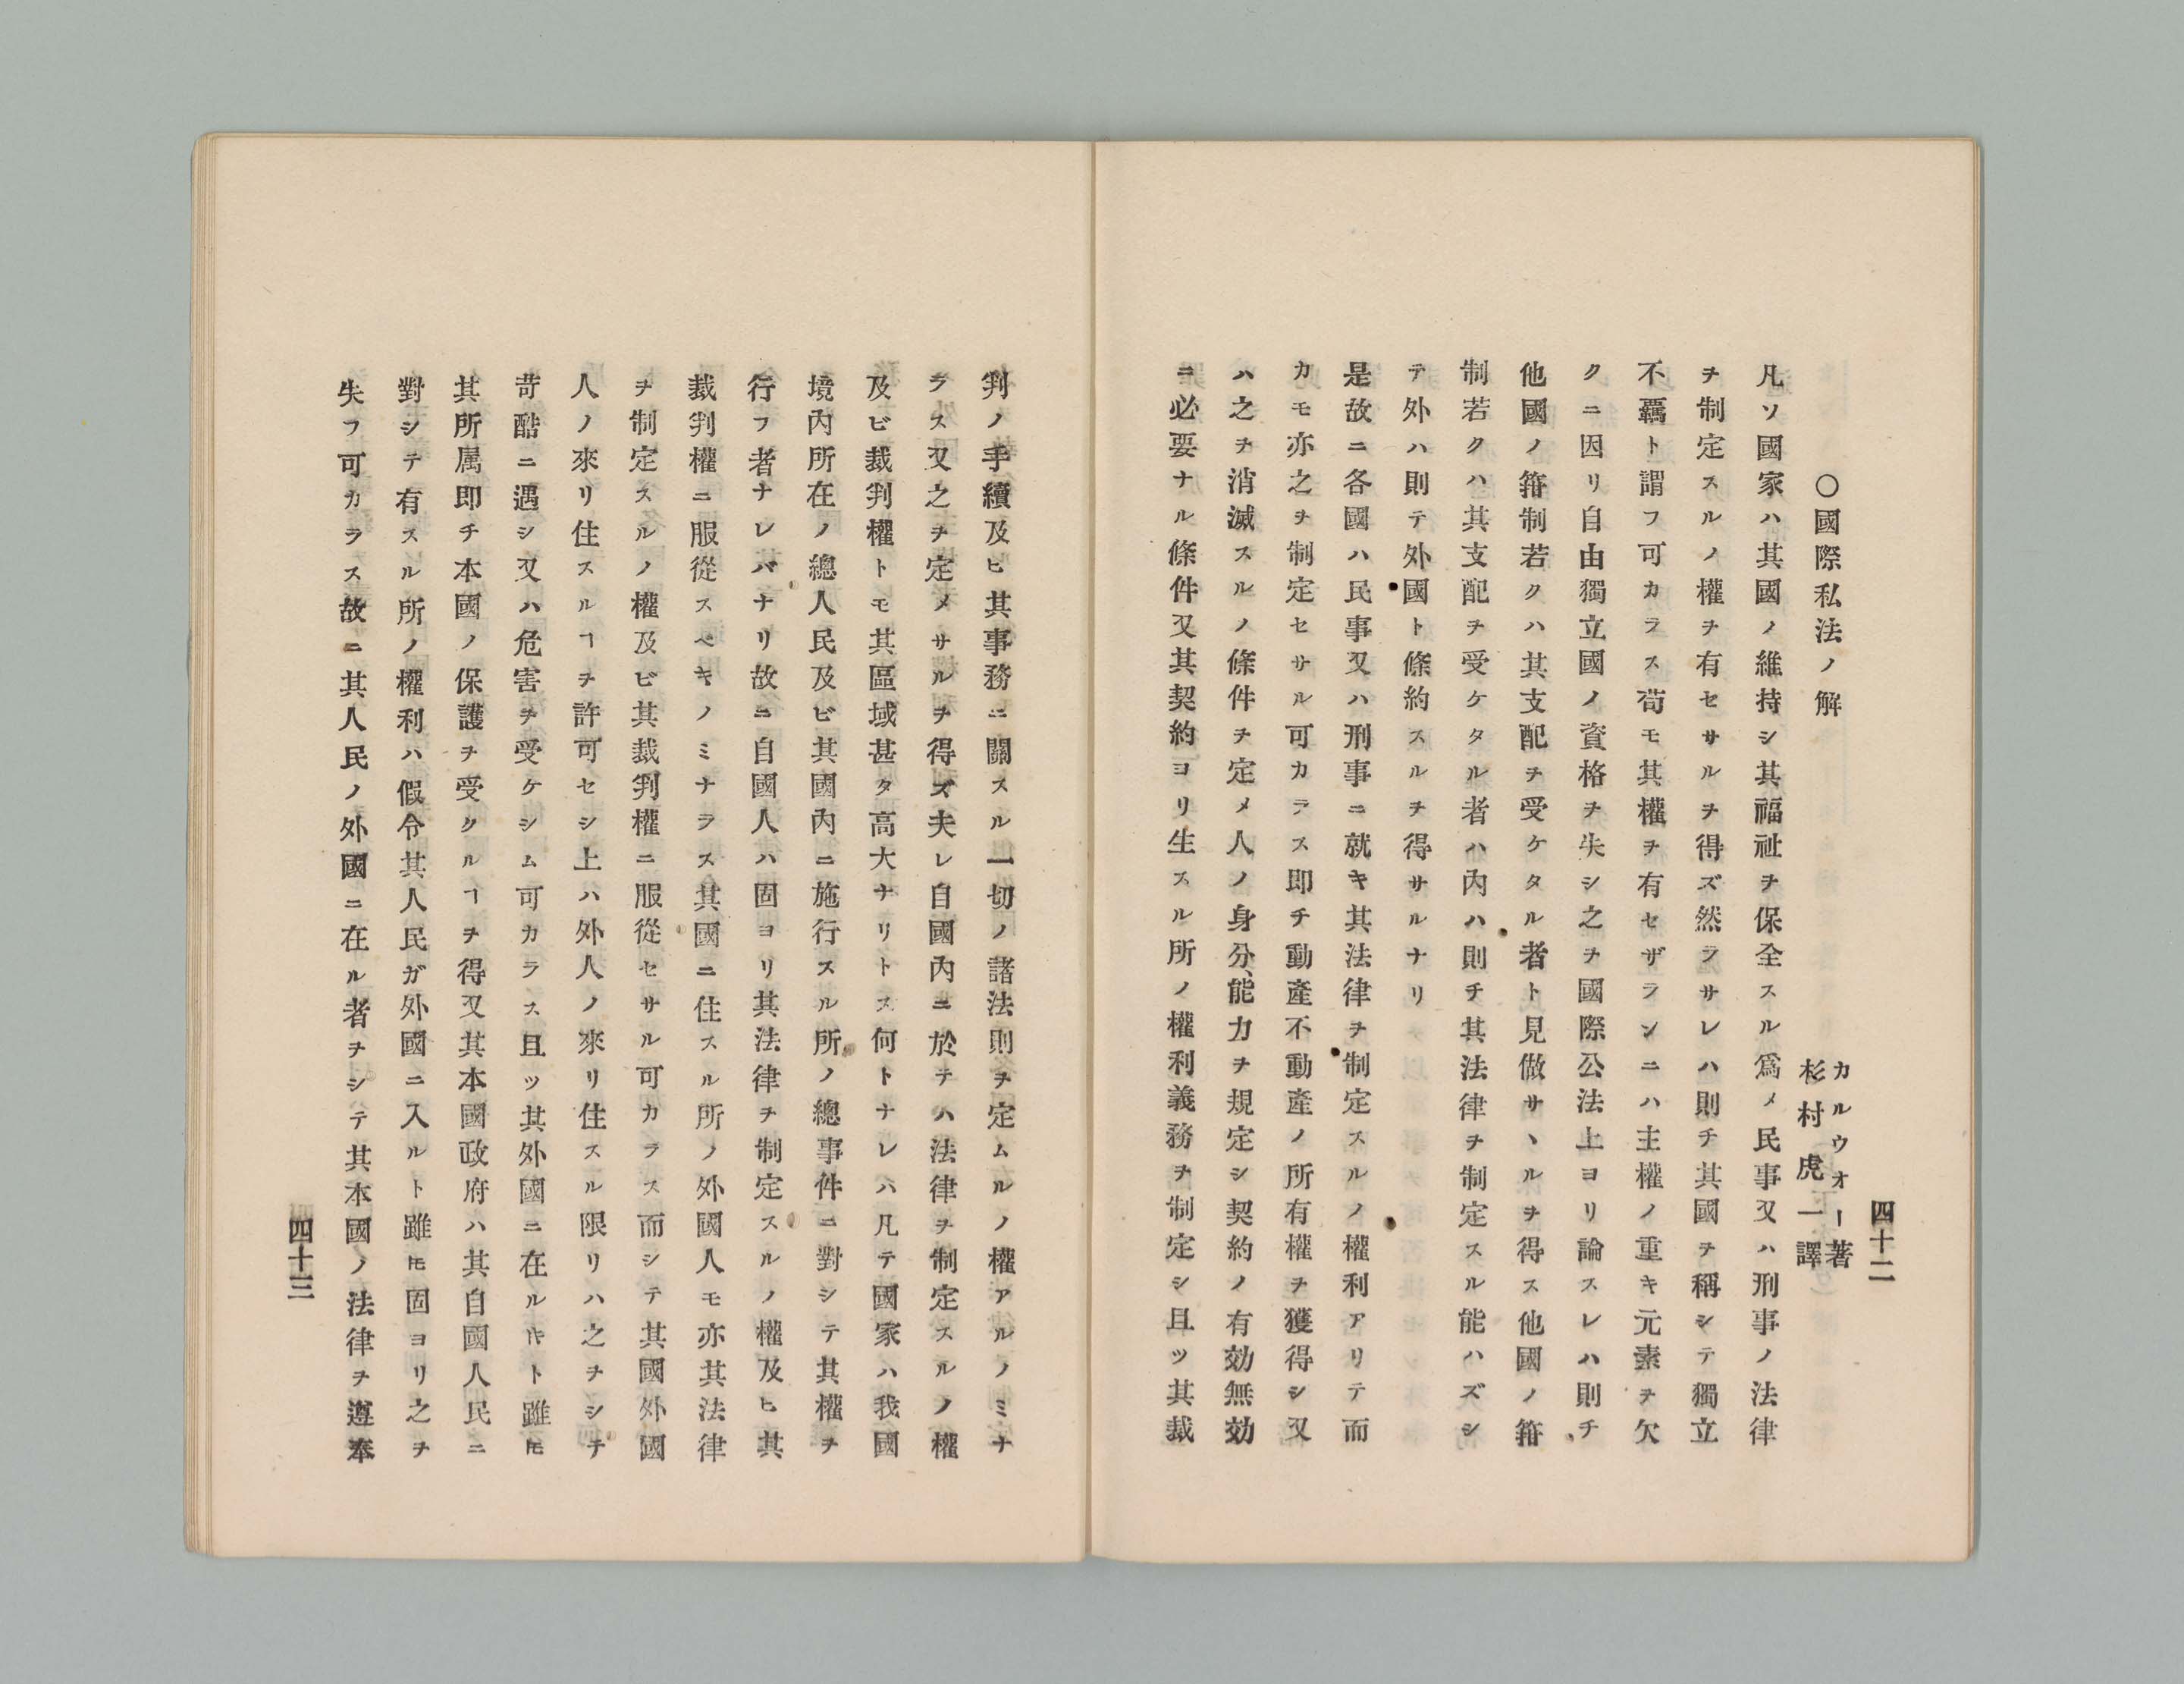 四十二
○國際私法ノ解
カルウオー著
杉村虎一譯
凡ソ國家ハ其國ノ維持シ其福祉ヲ保全スル爲メ民事又ハ刑事ノ法律
ヲ制定スルノ權ヲ有セサルヲ得ズ然ラサレハ則チ其國ヲ稱シテ獨立
不羈ト謂フ可カラス苟モ其權ヲ有セザランニハ主權ノ重キ元素ヲ欠
クニ因リ自由獨立國ノ資格ヲ失シ之ヲ國際公法上ヨリ論スレハ則チ
他國ノ箝制若クハ其支配ヲ受ケタル者ト見做サヽルヲ得ス他國ノ箝
制若クハ其支配ヲ受ケタル者ハ內ハ則チ其法律ヲ制定スル能ハズシ
テ外ハ則テ外國ト條約スルヲ得サルナリ
是故ニ各國ハ民事又ハ刑事ニ就キ其法律ヲ制定スルノ權利アリテ而
カモ亦之ヲ制定セサル可カラス即チ動產不動產ノ所有權ヲ獲得シ又
ハ之ヲ消滅スルノ條件ヲ定メ人ノ身分、能力ヲ規定シ契約ノ有効無効
ニ必要ナル條件又其契約ヨリ生スル所ノ權利義務ヲ制定シ且ツ其裁
判ノ手續及ヒ其事務ニ關スル一切ノ諸法則ヲ定ムルノ權アルノミナ
ラス又之ヲ定メサルヲ得ズ夫レ自國內ニ於テハ法律ヲ制定スルノ權
及ビ裁判權トモ其區域甚タ高大ナリトス何トナレハ凡テ國家ハ我國
境內所在ノ總人民及ビ其國內ニ施行スル所ノ總事件ニ對シテ其權ヲ
行フ者ナレバナリ故ニ自國人ハ固ヨリ其法律ヲ制定スルノ權及ヒ其
裁判權ニ服從スベキノミナラス其國ニ住スル所ノ外國人モ亦其法律
ヲ制定スルノ權及ビ其裁判權ニ服從セサル可カラス而シテ其國外國
人ノ來リ住スルヿヲ許可セシ上ハ外人ノ來リ住スル限リハ之ヲシテ
苛酷ニ遇シ又ハ危害ヲ受ケシム可カラス且ツ其外國ニ在ルキト雖𪜈
其所属即チ本國ノ保護ヲ受クルヿヲ得又其本國政府ハ其自國人民ニ
對シテ有スル所ノ權利ハ假令其人民ガ外國ニ入ルト雖𪜈固ヨリ之ヲ
失フ可カラス故ニ其人民ノ外國ニ在ル者ヲシテ其本國ノ法律ヲ遵奉
四十三